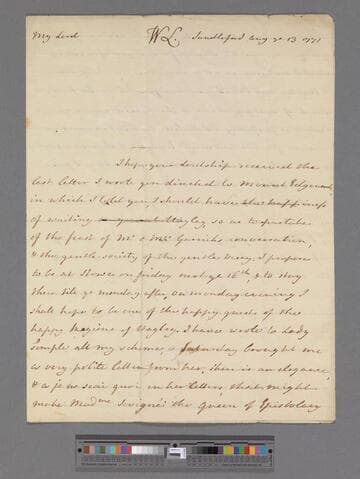 My Lord WL. Sandleford Aug ye 13 1771
I hope your Lordship received the
last letter I wrote you directed to Mount Edgecumbe
in which I told you I should have the happiness
of waiting Hagley, so as to partake
of the feast of Mr & Mrs Garricks conversation,
& the gentle society of the gentle Muse. I propose
to be at Stowe on friday next ye 16th, & to stay
there till ye monday after, on monday evening I
shall hope to be one of the happy guests of the
happy Regions of Hagley. I have wrote to Lady
Temple all my scheme, & saturday brought me
a very polite letter from her, there is an elegance,
& a je ne scai quoi in her letters, that might
make Madme Sevigné the Queen of Epistolary